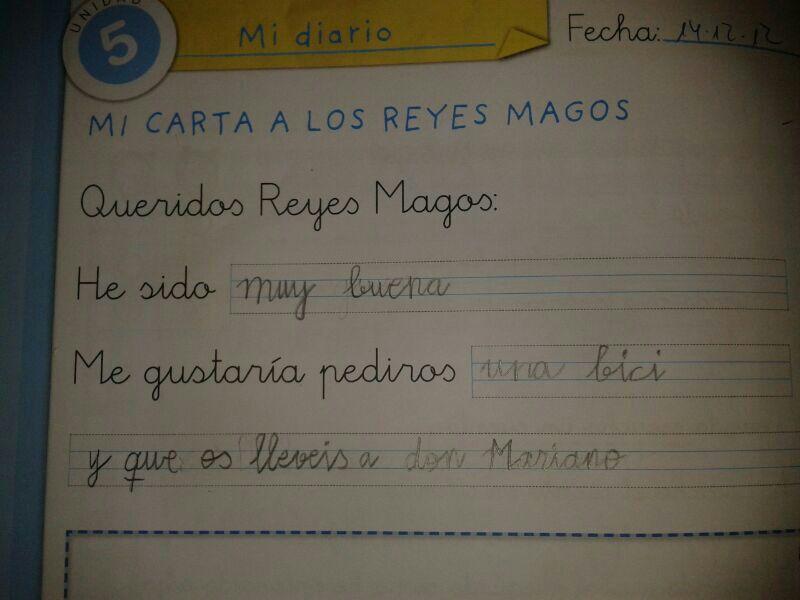 UNIDAD
5
Mi diario
Fecha: 14.12.12
MI CARTA A LOS REYES MAGOS
Queridos Reyes Magos:
He sido muy buena
Me gustaría pediros una bici
y que os lleveis a don Mariano